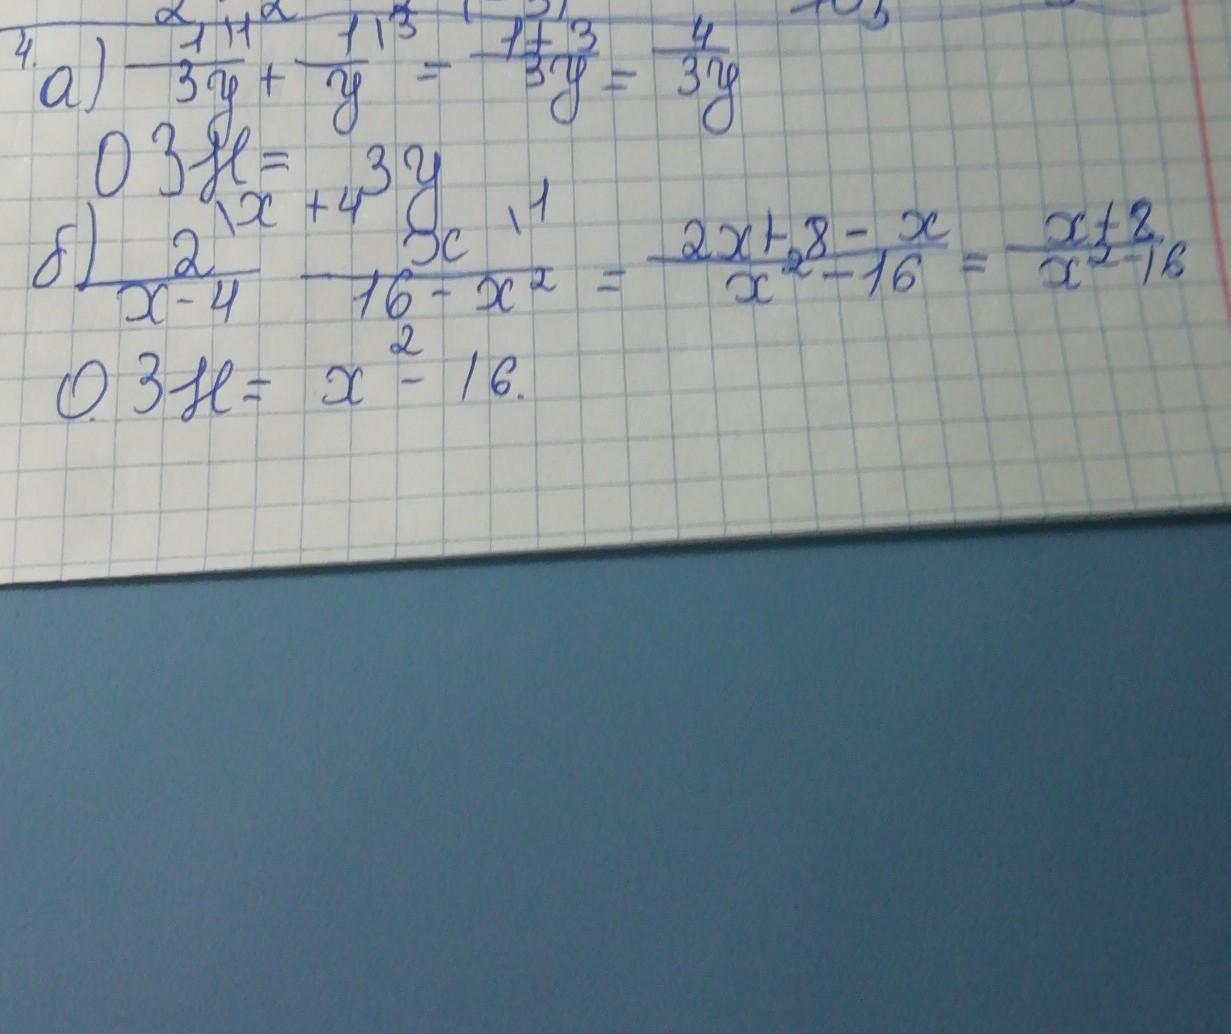 4. а) 1\1/3y + 1\3/y = 1+3/3y = 4/3y
ОЗН = 3y
б) 2\x+4/x-4 x\1/16-x² = 2x+8-x/x²-16 = x+8/x²-16
О.ЗН = x²-16.